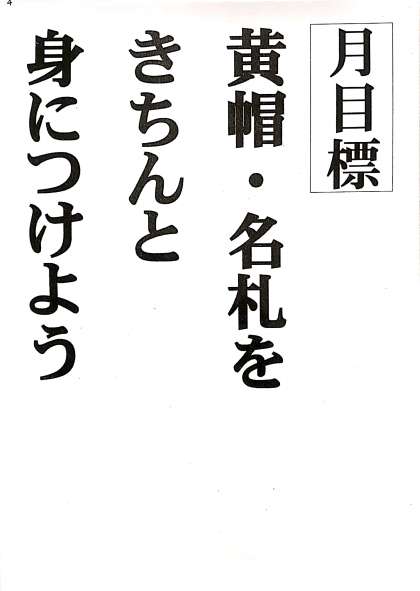 月目標
黄帽・名札を
きちんと
身につけよう
4